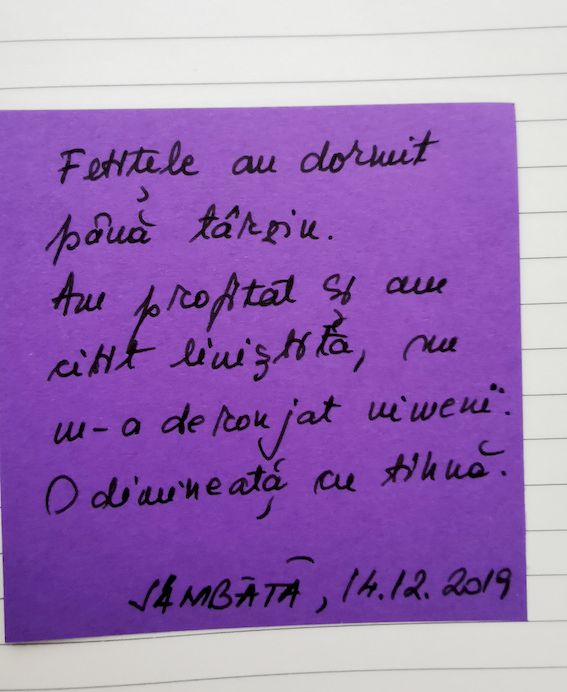 Fetițele au dormit
până târziu.
Am profitat și am
citit liniștită, nu
m-a deranjat nimeni.
O dimineață cu tihnă.
SÂMBĂTĂ, 14.12.2019